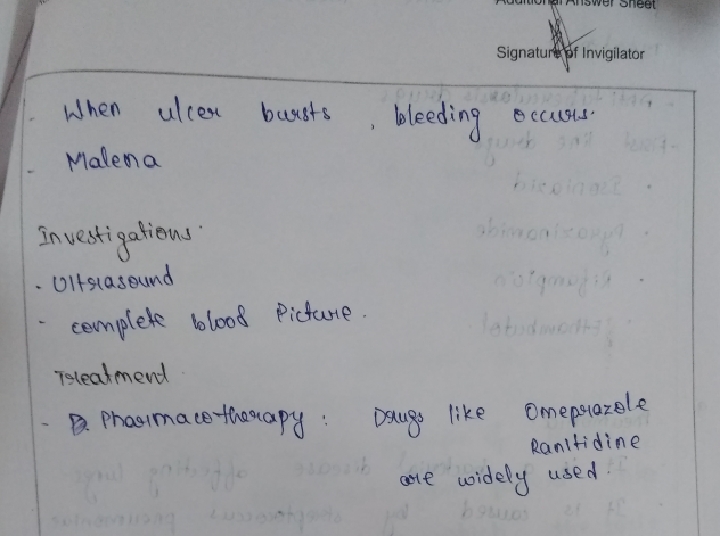 Additional Answer Sheet
Signature of Invigilator
- When ulcer bursts, bleeding occurs.
- Malena
Investigations.
- Ultrasound
- complete blood Picture.
Treatment
- Pharmacotherapy: Drugs like Omeprazole
Ranitidine
are widely used.